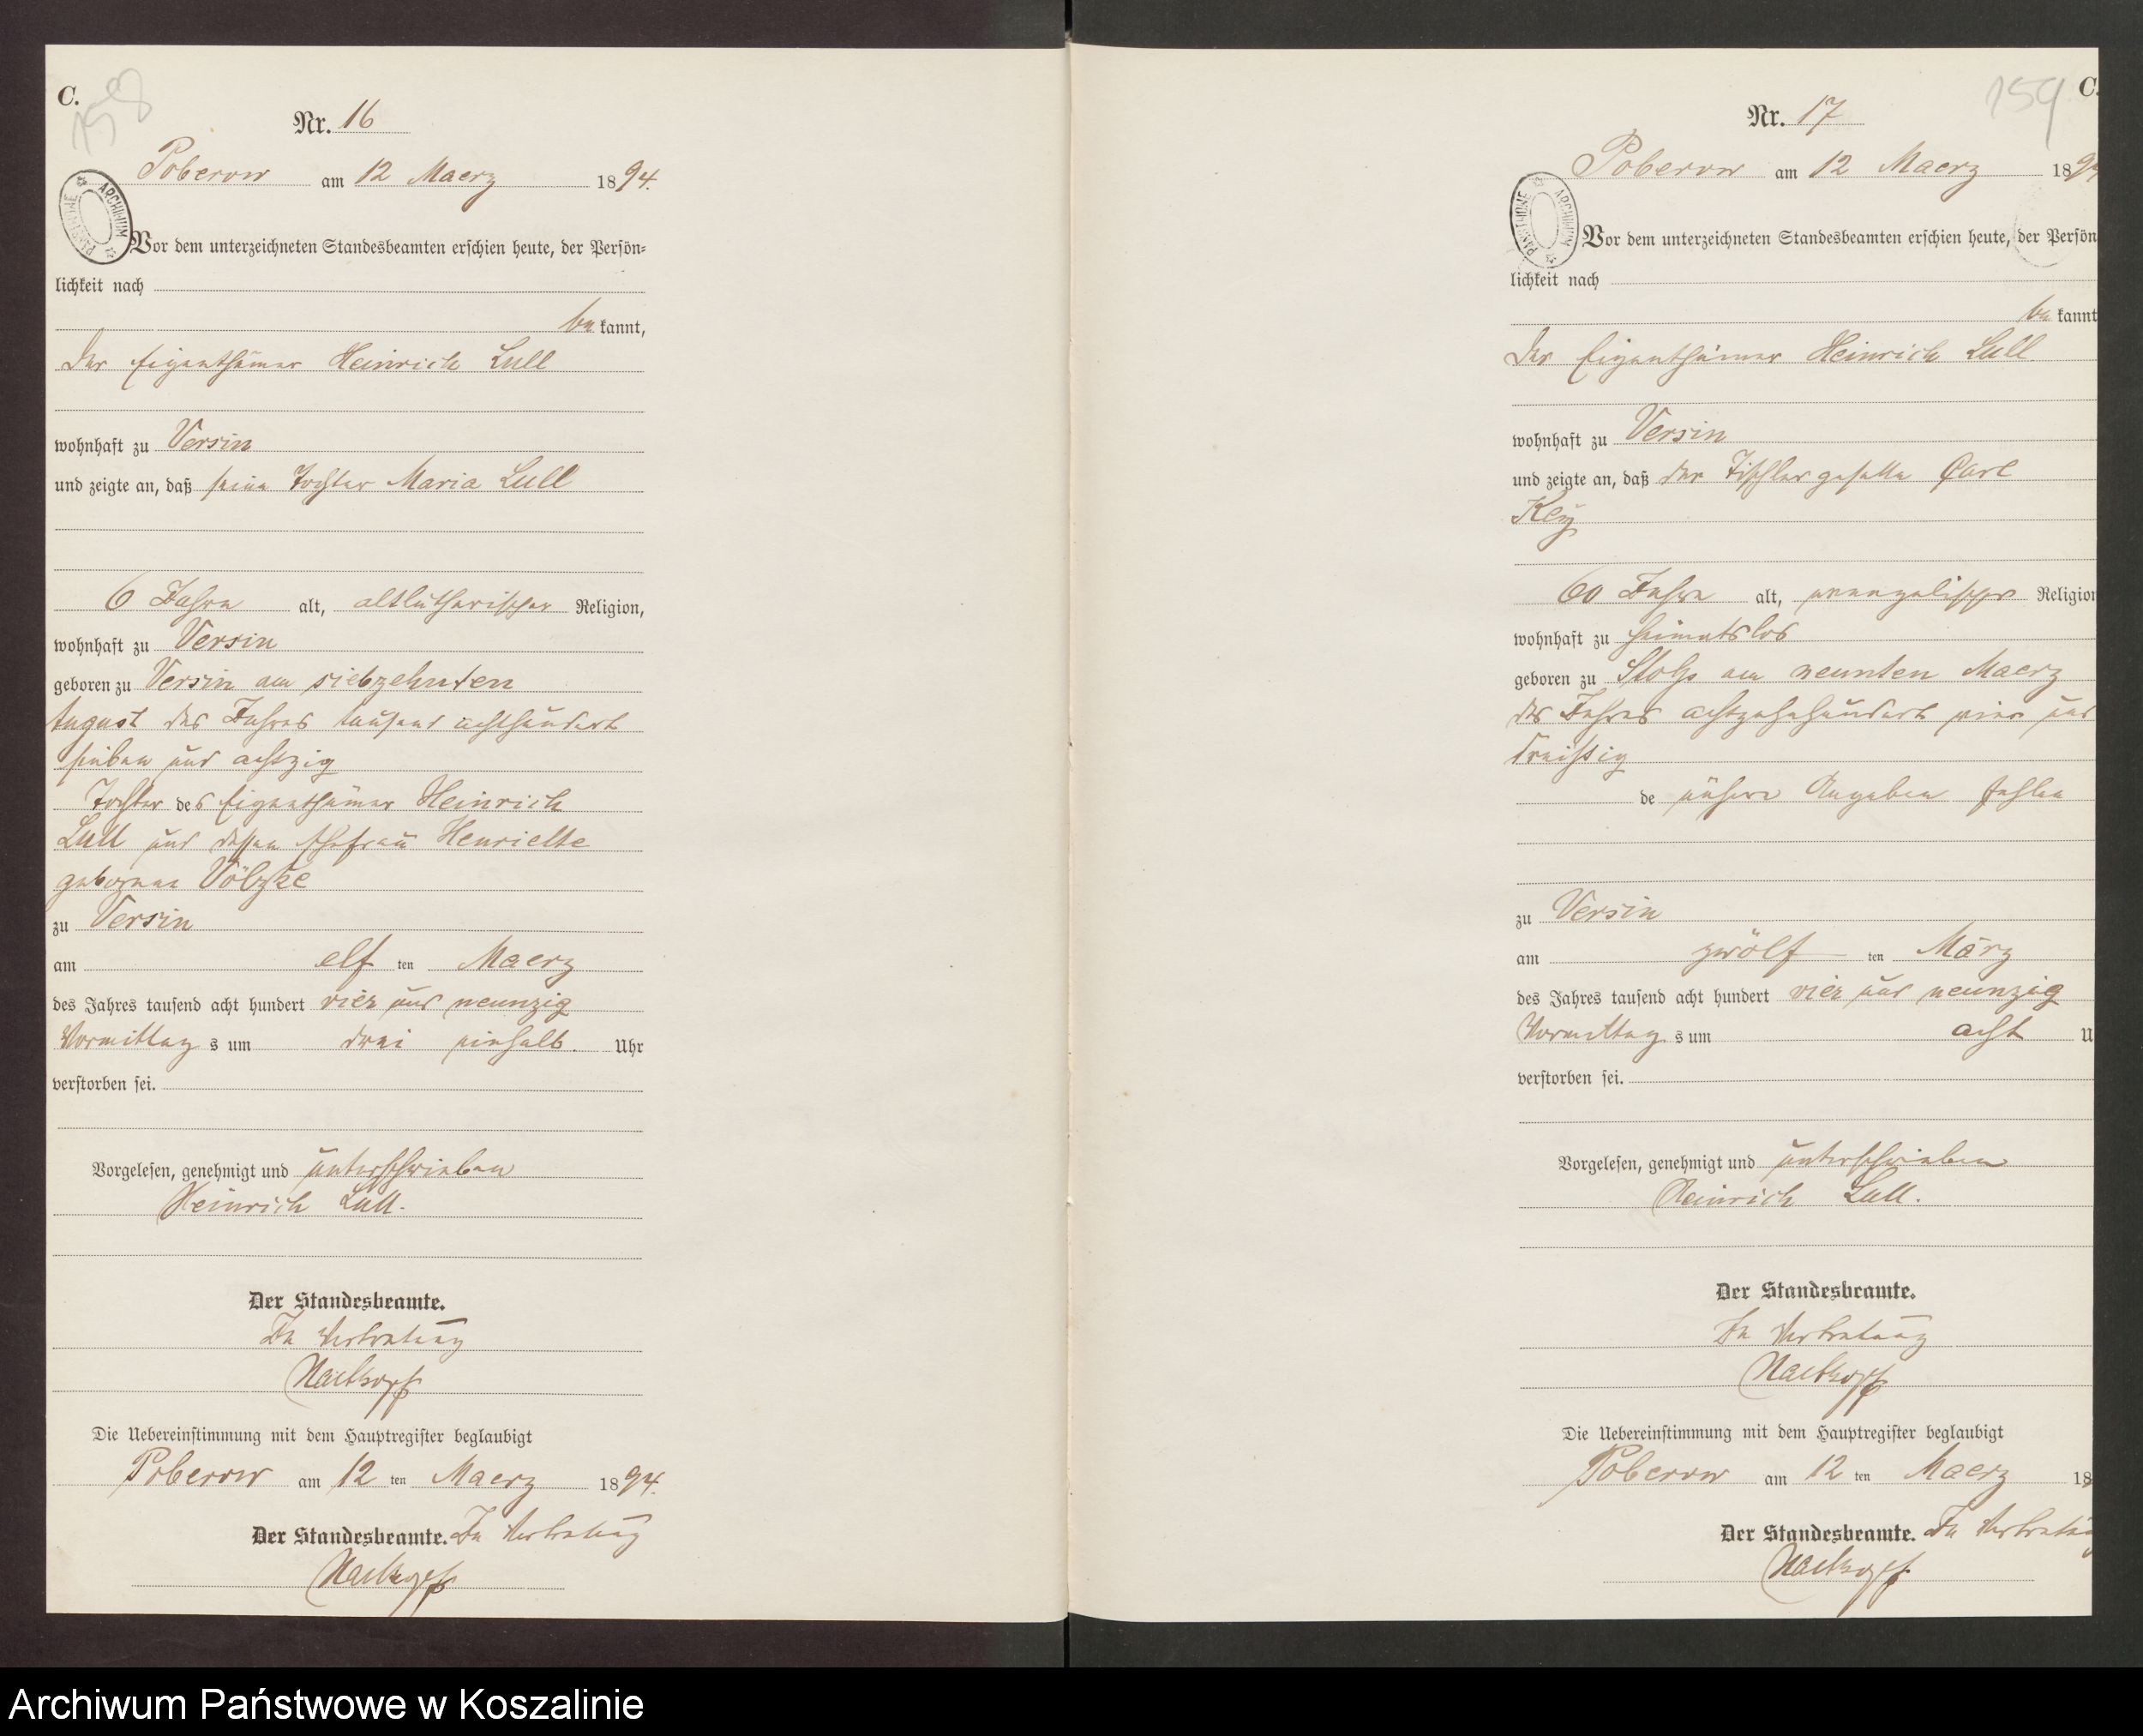 C.
158
Nr. 16
Poberow am 12 Maerz 1894.
ARCHIWUM PAŃSTWOWE
Vor dem unterzeichneten Standesbeamten erschien heute, der Persön=
lichkeit nach
be kannt,
der Eigenthümer Heinrich Lull
wohnhaft zu Versin
und zeigte an, daß seine Tochter Maria Lull
6 Jahre alt, altlutherischer Religion,
wohnhaft zu Versin
geboren zu Versin am siebzehnten
August des Jahres tausend achthundert
sieben und achtzig
Tochter des Eigenthümer Heinrich
Lull und dessen Ehefrau Henriette
geborene Völzke
zu Versin
am elf ten Maerz
des Jahres tausend acht hundert vier und neunzig
Vormittag s um drei einhalb. Uhr
verstorben sei.
Vorgelesen, genehmigt und unterschrieben
Heinrich Lull.
Der Standesbeamte.
In Vertretung
Die Uebereinstimmung mit dem Hauptregister beglaubigt
Poberow am 12 ten Maerz 1894.
Der Standesbeamte. In Vertretung
159
C.
Nr. 17
Poberow am 12 Maerz 1894
ARCHIWUM PAŃSTWOWE
Vor dem unterzeichneten Standesbeamten erschien heute, der Persön
lichkeit nach
be kannt
der Eigenthümer Heinrich Lull
wohnhaft zu Versin
und zeigte an, daß der Tischlergeselle Carl
Key
60 Jahre alt, evangelischer Religion
wohnhaft zu heimatslos
geboren zu Stolp am neunten Maerz
des Jahres achtzehnhundert vier und
dreißig
de nähere Angaben fehlen
zu Versin
am zwölf ten März
des Jahres tausend acht hundert vier und neunzig
Vormittag s um acht U
verstorben sei.
Vorgelesen, genehmigt und unterschrieben
Heinrich Lull.
Der Standesbeamte.
In Vertretung
Die Uebereinstimmung mit dem Hauptregister beglaubigt
Poberow am 12 ten Maerz 18
Der Standesbeamte. In Vertretung
Archiwum Państwowe w Koszalinie